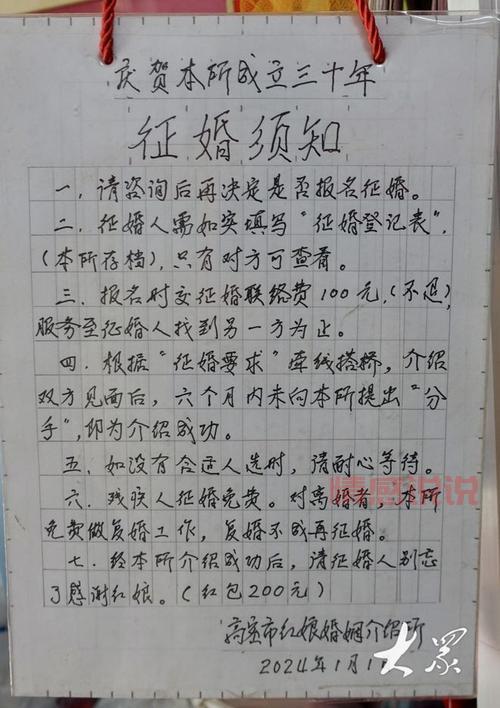 庆贺本所成立三十年
征婚须知
一、请咨询后再决定是否报名征婚。
二、征婚人需如实填写“征婚登记表”,
(本所存档),只有对方可查看。
三、报名时交征婚联络费100元,(不退),
服务至征婚人找到另一方为止。
四、根据“征婚要求”牵线搭桥,介绍
双方见面后,六个月内未向本所提出“分
手”,即为介绍成功。
五、如没有合适人选时,请耐心等待。
六、残疾人征婚免费。对离婚者,本所
免费做复婚工作,复婚不成再征婚。
七、经本所介绍成功后,请征婚人别忘
了感谢红娘。(红包200元)
高密市红娘婚姻介绍所
2024年1月1
情感说说
大众